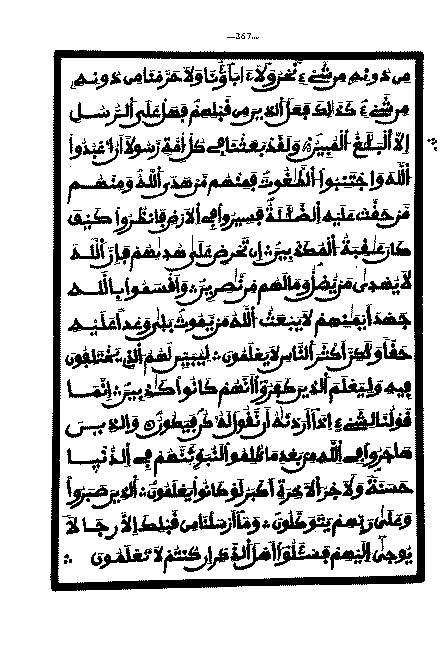 —267—
مِن دُونِهِ مِن شَيْءٍ نَّحْنُ وَلَا ءَابَآؤُنَا وَلَا حَرَّمْنَا مِن دُونِهِ
مِن شَيْءٍ كَذَٰلِكَ فَعَلَ ٱلذِينَ مِن قَبْلِهِمْ فَهَلْ عَلَى ٱلرُّسُلِ
إِلَّا ٱلْبَلَٰغُ ٱلْمُبِينُ وَلَقَدْ بَعَثْنَا فِي كُلِّ أُمَّةٍ رَّسُولًا أَنُ ٱعْبُدُوا۟
ٱللَّهَ وَٱجْتَنِبُوا۟ ٱلطَّٰغُوتَ فَمِنْهُم مَّنْ هَدَى ٱللَّهُ وَمِنْهُم
مَّنْ حَقَّتْ عَلَيْهِ ٱلضَّلَٰلَةُ فَسِيرُوا۟ فِي ٱلْأَرْضِ فَٱنظُرُوا۟ كَيْفَ
كَانَ عَٰقِبَةُ ٱلْمُكَذِّبِينَ إِن تَحْرِصْ عَلَىٰ هُدَىٰهُمْ فَإِنَّ ٱللَّهَ
لَا يُهْدَىٰ مَن يُّضِلُّ وَمَا لَهُم مِّن نَّٰصِرِينَ وَأَقْسَمُوا۟ بِٱللَّهِ
جَهْدَ أَيْمَٰنِهِمْ لَا يَبْعَثُ ٱللَّهُ مَن يَّمُوتُ بَلَىٰ وَعْدًا عَلَيْهِ
حَقًّا وَلَٰكِنَّ أَكْثَرَ ٱلنَّاسِ لَا يَعْلَمُونَ لِيُبَيِّنَ لَهُمُ ٱلذِي يَخْتَلِفُونَ
فِيهِ وَلِيَعْلَمَ ٱلذِينَ كَفَرُوٓا۟ أَنَّهُمْ كَانُوا۟ كَٰذِبِينَ إِنَّمَا
قَوْلُنَا لِشَيْءٍ إِذَآ أَرَدْنَٰهُ أَن نَّقُولَ لَهُۥ كُن فَيَكُونُ وَٱلذِينَ
هَاجَرُوا۟ فِي ٱللَّهِ مِنۢ بَعْدِ مَا ظُلِمُوا۟ لَنُبَوِّئَنَّهُمْ فِي ٱلدُّنْيَا
حَسَنَةً وَلَأَجْرُ ٱلْأَخِرَةِ أَكْبَرُ لَوْ كَانُوا۟ يَعْلَمُونَ ٱلذِينَ صَبَرُوا۟
وَعَلَىٰ رَبِّهِمْ يَتَوَكَّلُونَ وَمَآ أَرْسَلْنَا مِن قَبْلِكَ إِلَّا رِجَالًا
يُوحَىٰٓ إِلَيْهِمْ فَسْـَٔلُوٓا۟ أَهْلَ ٱلذِّكْرِ إِن كُنتُمْ لَا تَعْلَمُونَ